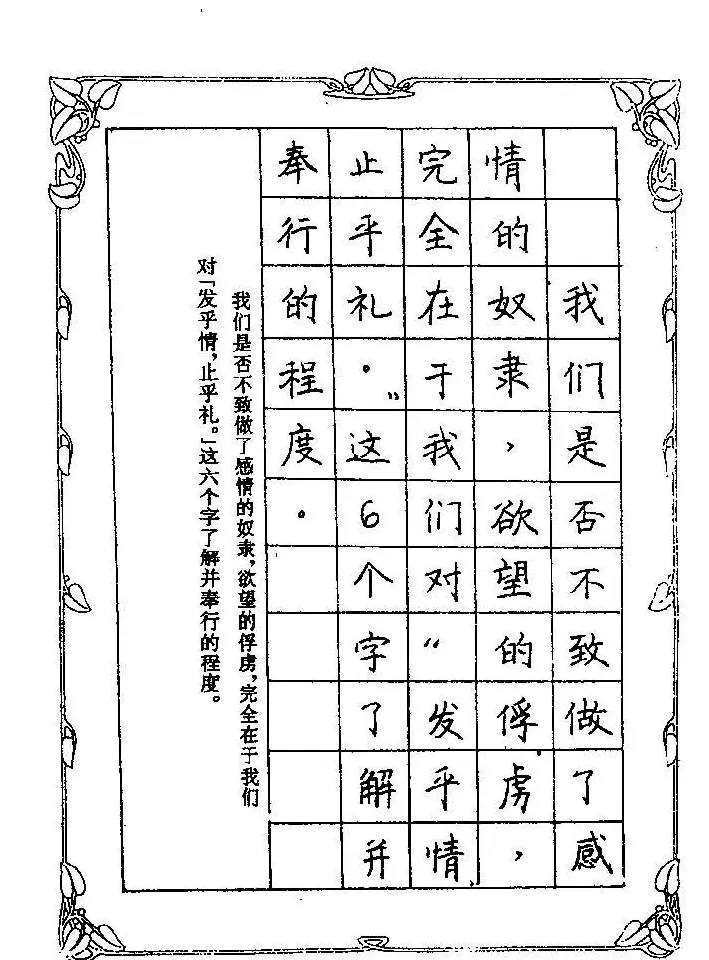 我们是否不致做了感
情的奴隶，欲望的俘虏，
完全在于我们对“发乎情，
止乎礼。”这6个字了解并
奉行的程度。
我们是否不致做了感情的奴隶，欲望的俘虏，完全在于我们
对「发乎情，止乎礼。」这六个字了解并奉行的程度。